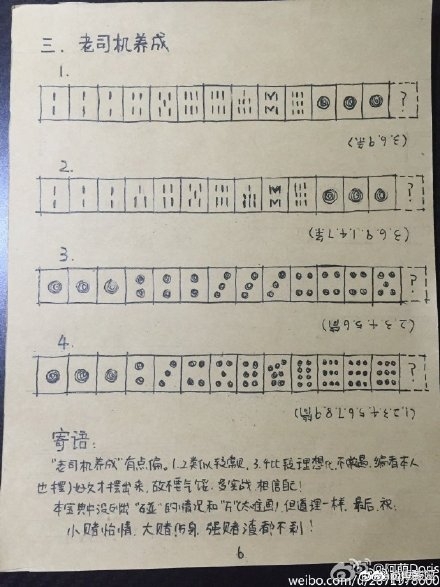 三. 老司机养成
1.
?
(3.6.9条)
2.
?
(3.6.9.1.4.7条)
3.
?
(2.3.4.5.6筒)
4.
?
(1.2.3.4.5.6.7.8.9筒)
寄语:
"老司机养成"有点偏。1.2类似较常规, 3.4比较理想化, 不常遇, 编者本人
也摆了好久才摆出来, 故不要气馁, 多实战, 相信自己!
本宝典中没列出"碰"的情况和"万"(太难画), 但道理一样。最后, 祝:
小赌怡情, 大赌伤身, 强赌渣都不剩!
6
@阿萌Doris
weibo.com/u/2871978660